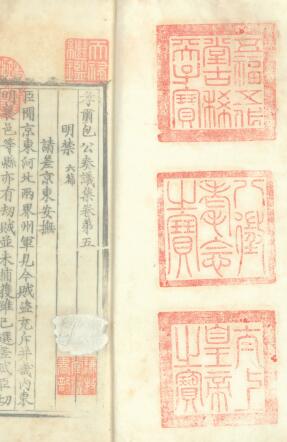 五福五代
堂古稀
天子寶
八徵
耄念
之寶
太上
皇帝
之寶
天祿
繼鑑
孝肅包公奏議集卷第五
明禁 六篇
請差京東安撫
臣聞京東河北兩界州軍見今賊盜充斥并畿内東
明襄邑等縣亦有刼賊並未捕獲雖已選差武臣切